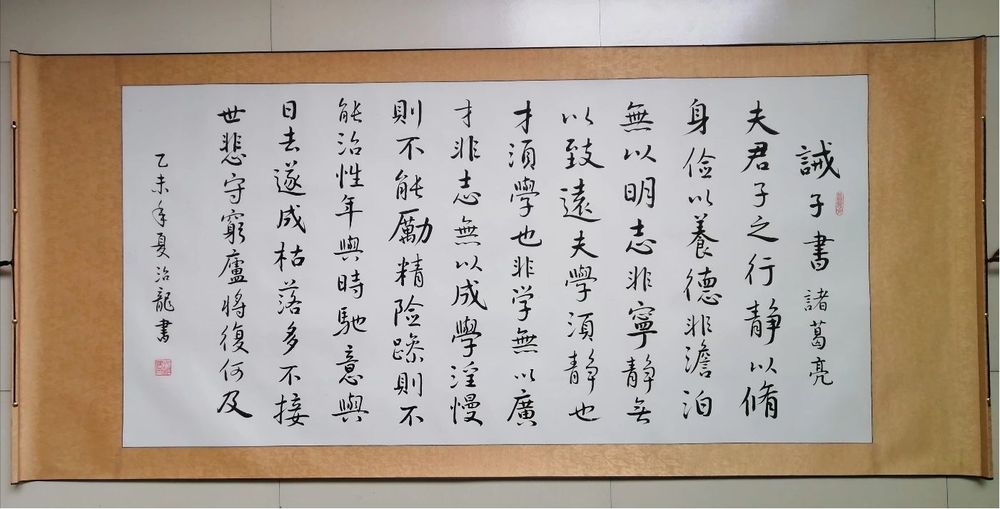 誡子書 諸葛亮
夫君子之行静以脩
身儉以養德非澹泊
無以明志非寧静無
以致遠夫學須静也
才須學也非学無以廣
才非志無以成學淫慢
則不能勵精險躁則不
能治性年與時馳意與
日去遂成枯落多不接
世悲守窮廬將復何及
乙未年夏治龍書